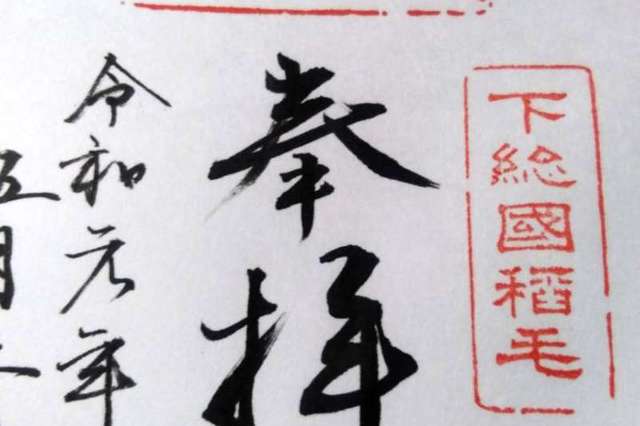 下総國稻毛
奉拝
令和元年
五月